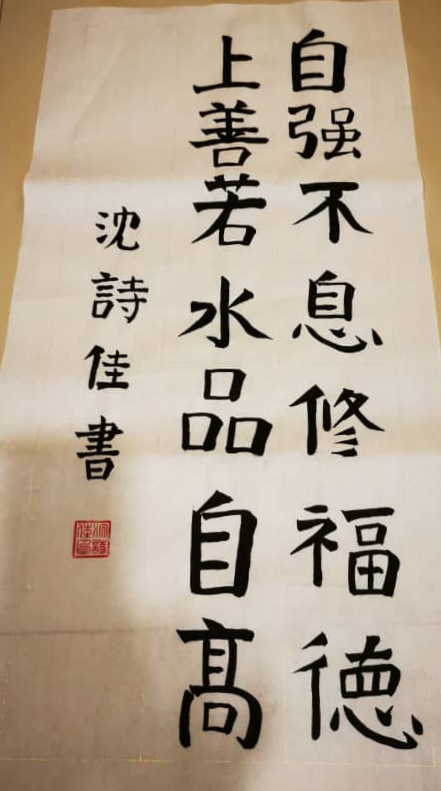 自强不息修福德
上善若水品自高
沈詩佳書